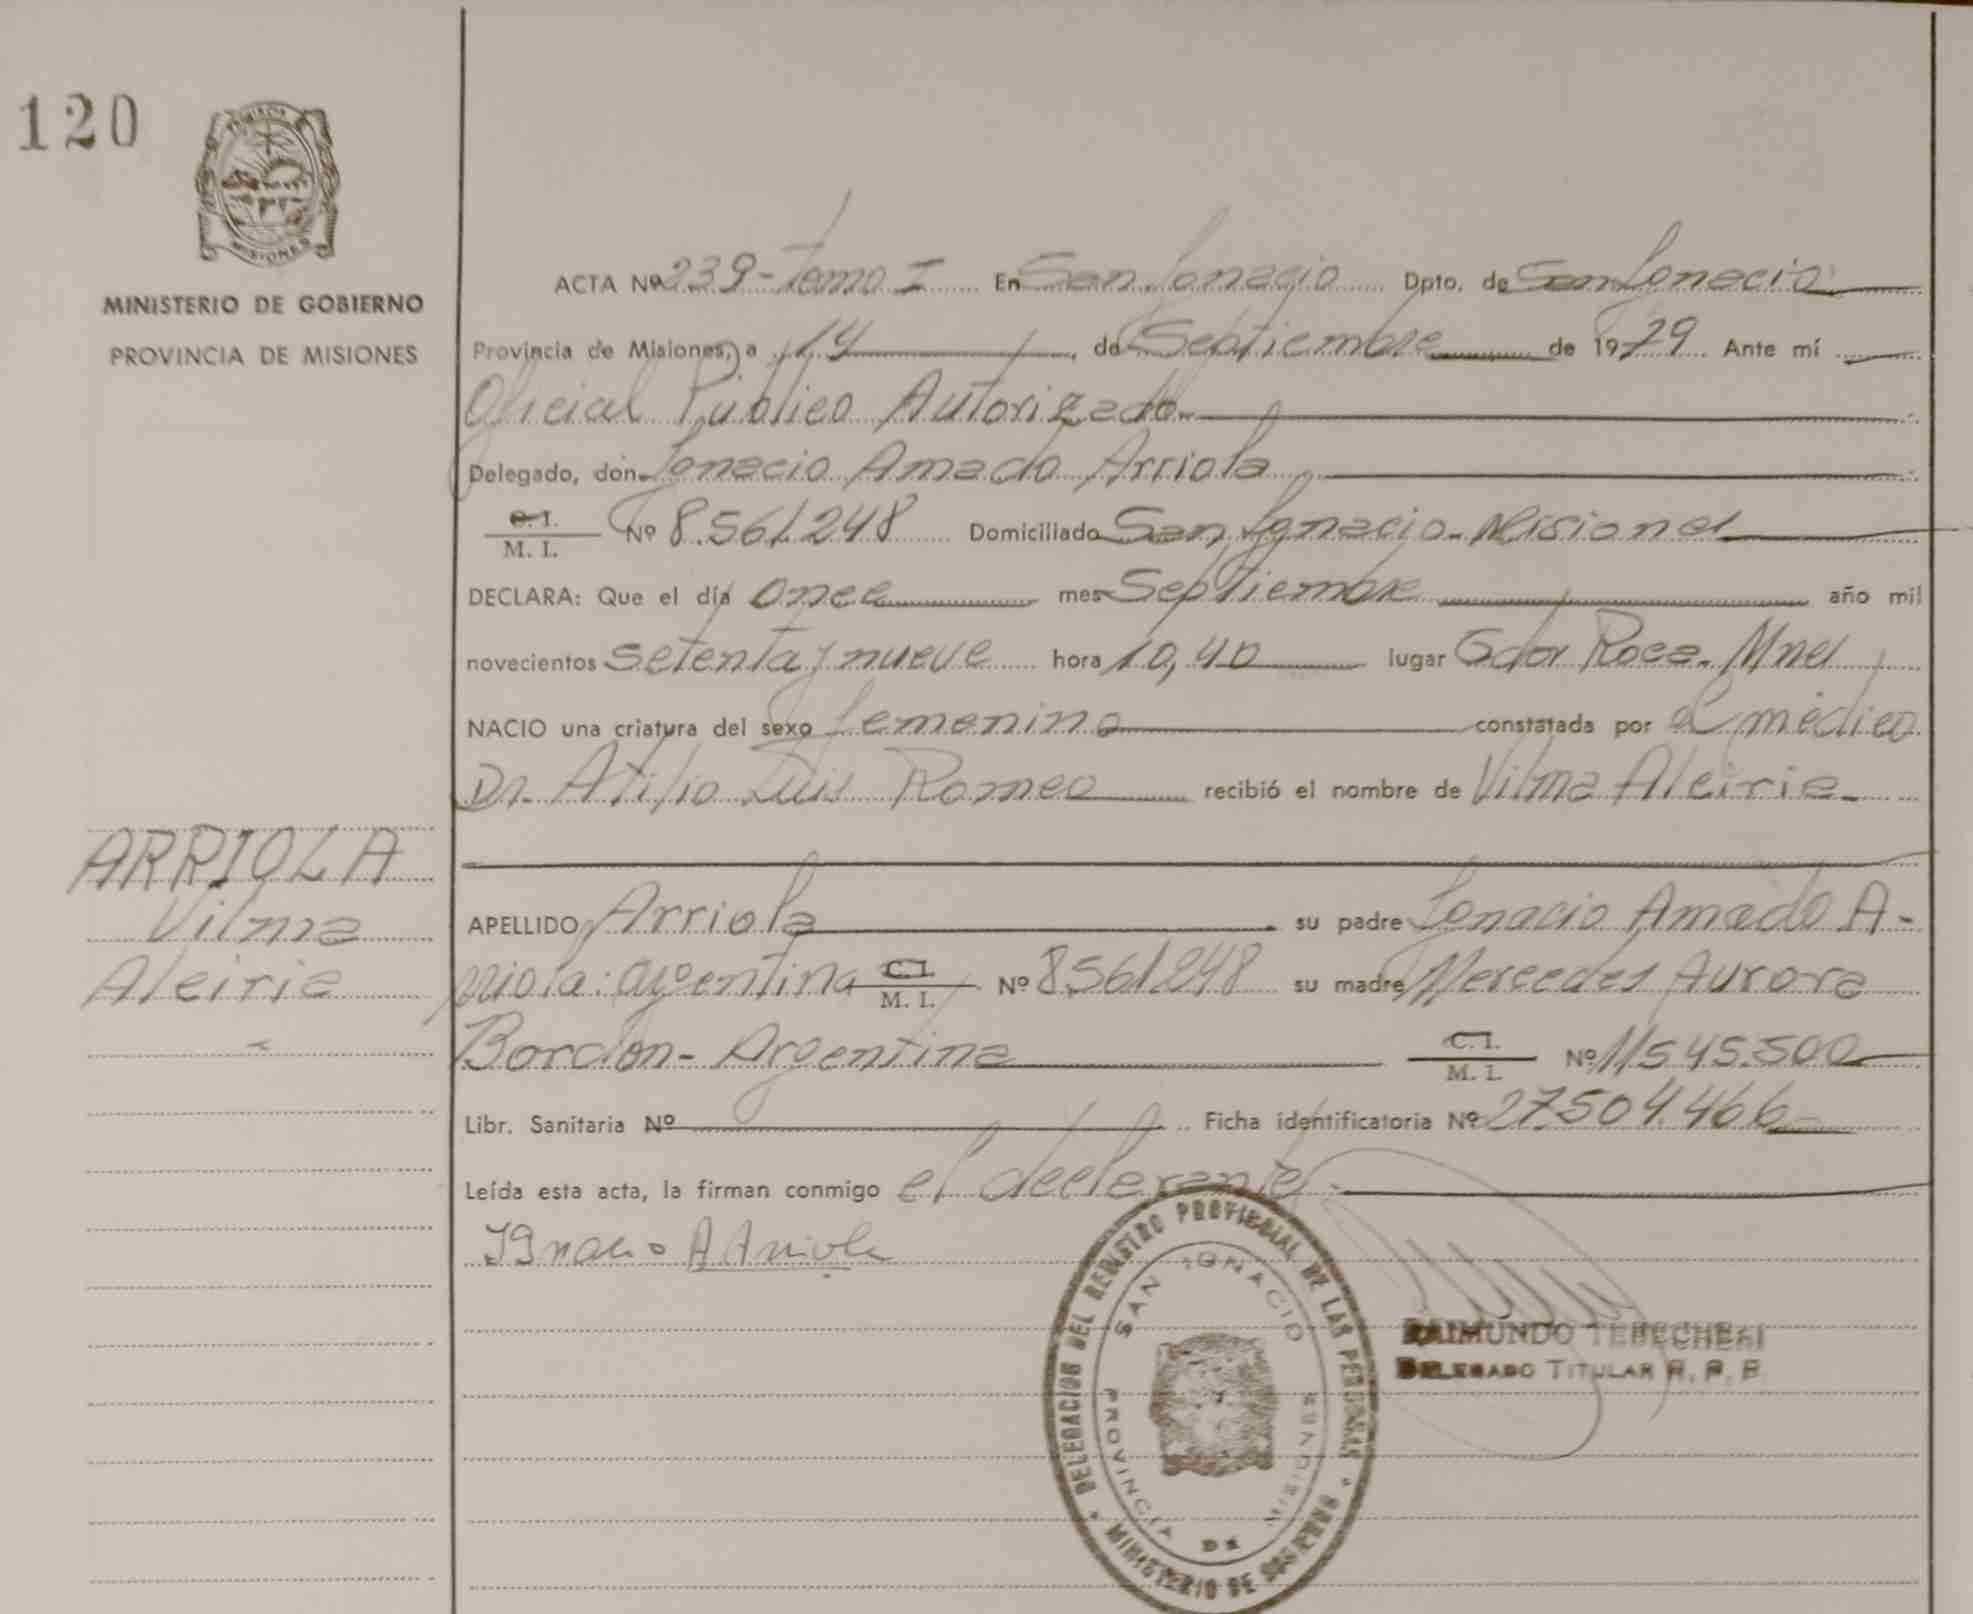 120
PROVINCIA
MISIONES
MINISTERIO DE GOBIERNO
PROVINCIA DE MISIONES
ACTA Nº 239 - Tomo I En San Ignacio Dpto. de San Ignacio
Provincia de Misiones, a 14, de Septiembre de 1979 Ante mí
Oficial Público Autorizado
Delegado, don Ignacio Amado Arriola
C. I.
M. I. Nº 8.561.248 Domiciliado San Ignacio - Misiones
DECLARA: Que el día once mes Septiembre año mil
novecientos setenta y nueve hora 10,40 lugar Gdor Roca - Mnes
NACIO una criatura del sexo femenino constatada por el médico
Dr. Atilio Luis Romeo recibió el nombre de Vilma Alciria -
ARRIOLA
Vilma
Alciria
APELLIDO Arriola su padre Ignacio Amado A-
rriola: argentina C.I. M. I. Nº 8.561.248 su madre Mercedes Aurora
Bordon - Argentina C.I. M. I. Nº 11.545.500
Libr. Sanitaria Nº Ficha identificatoria Nº 27.504.466
Leída esta acta, la firman conmigo el declarante.
Ignacio A Arriola
DELEGACION DEL REGISTRO PROVINCIAL DE LAS PERSONAS
MINISTERIO DE GOBIERNO
SAN IGNACIO
PROVINCIA DE MISIONES
RAIMUNDO
DELEGADO TITULAR R. P. P